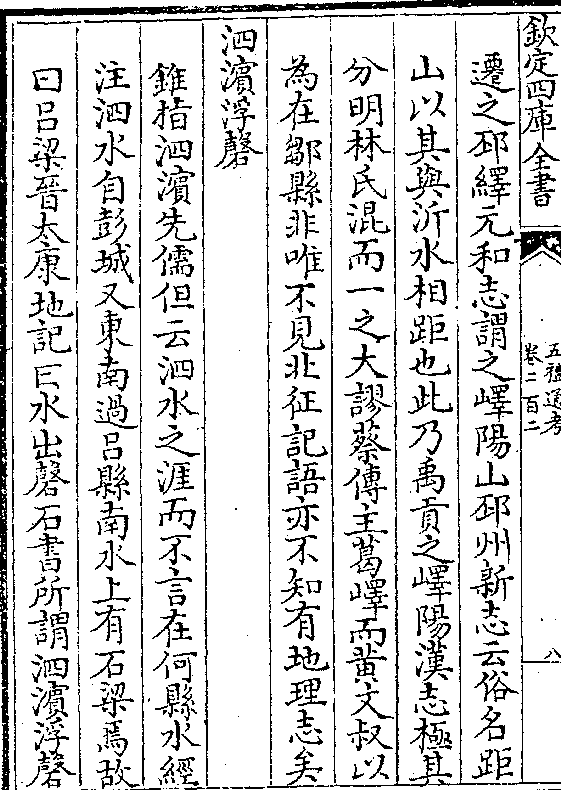 欽定四庫全書
五禮通考
卷二百二
八
遷之邳繹元和志謂之嶧陽山邳州新志云俗名距
山以其與沂水相距也此乃禹貢之嶧陽漢志極其
分明林氏混而一之大謬蔡傳主葛嶧而黄文叔以
為在鄒縣非唯不見北征記語亦不知有地理志矣
泗濱浮磬
錐指泗濱先儒但云泗水之涯而不言在何縣水經
注泗水自彭城又東南過吕縣南水上有石梁焉故
曰吕梁晉太康地記曰水出磬石書所謂泗濱浮磬